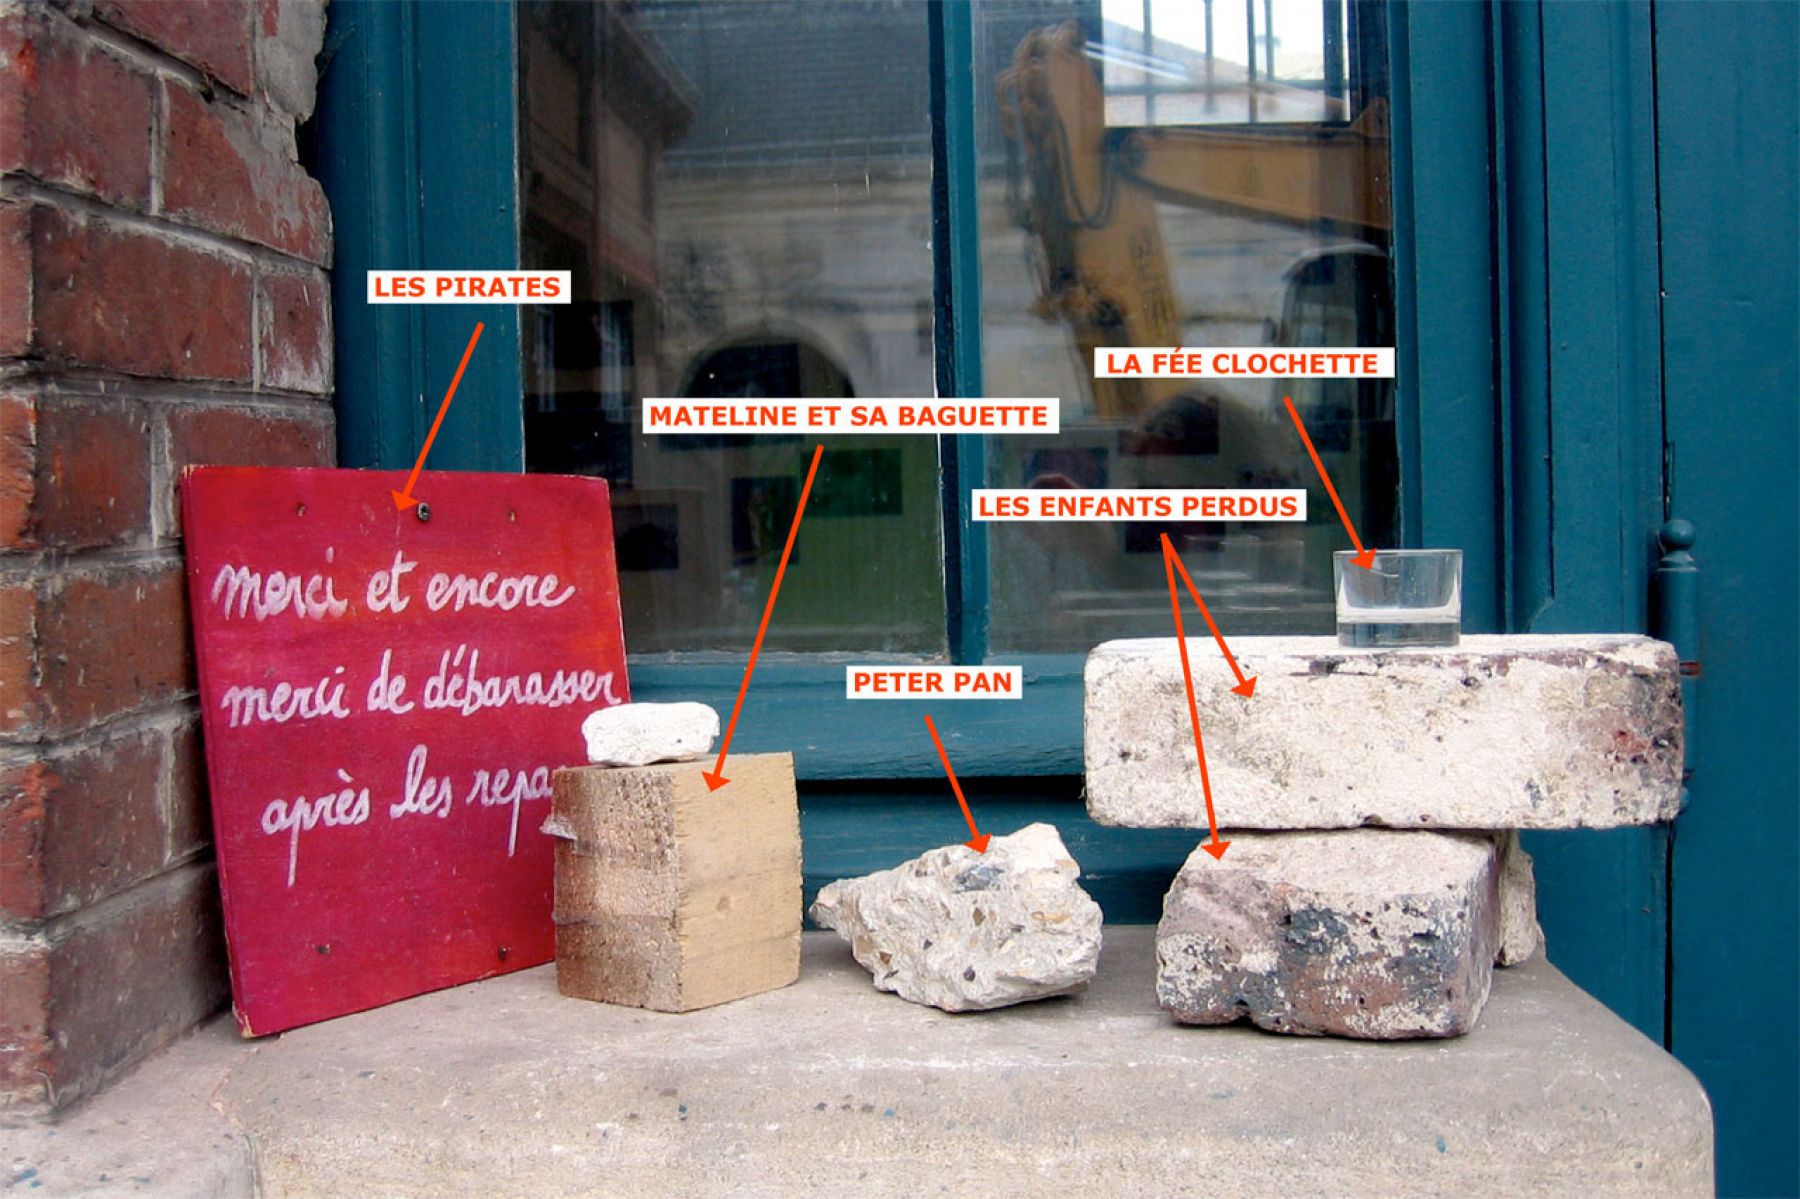 LES PIRATES
LA FÉE CLOCHETTE
MATELINE ET SA BAGUETTE
LES ENFANTS PERDUS
PETER PAN
merci et encore
merci de débarasser
après les repa